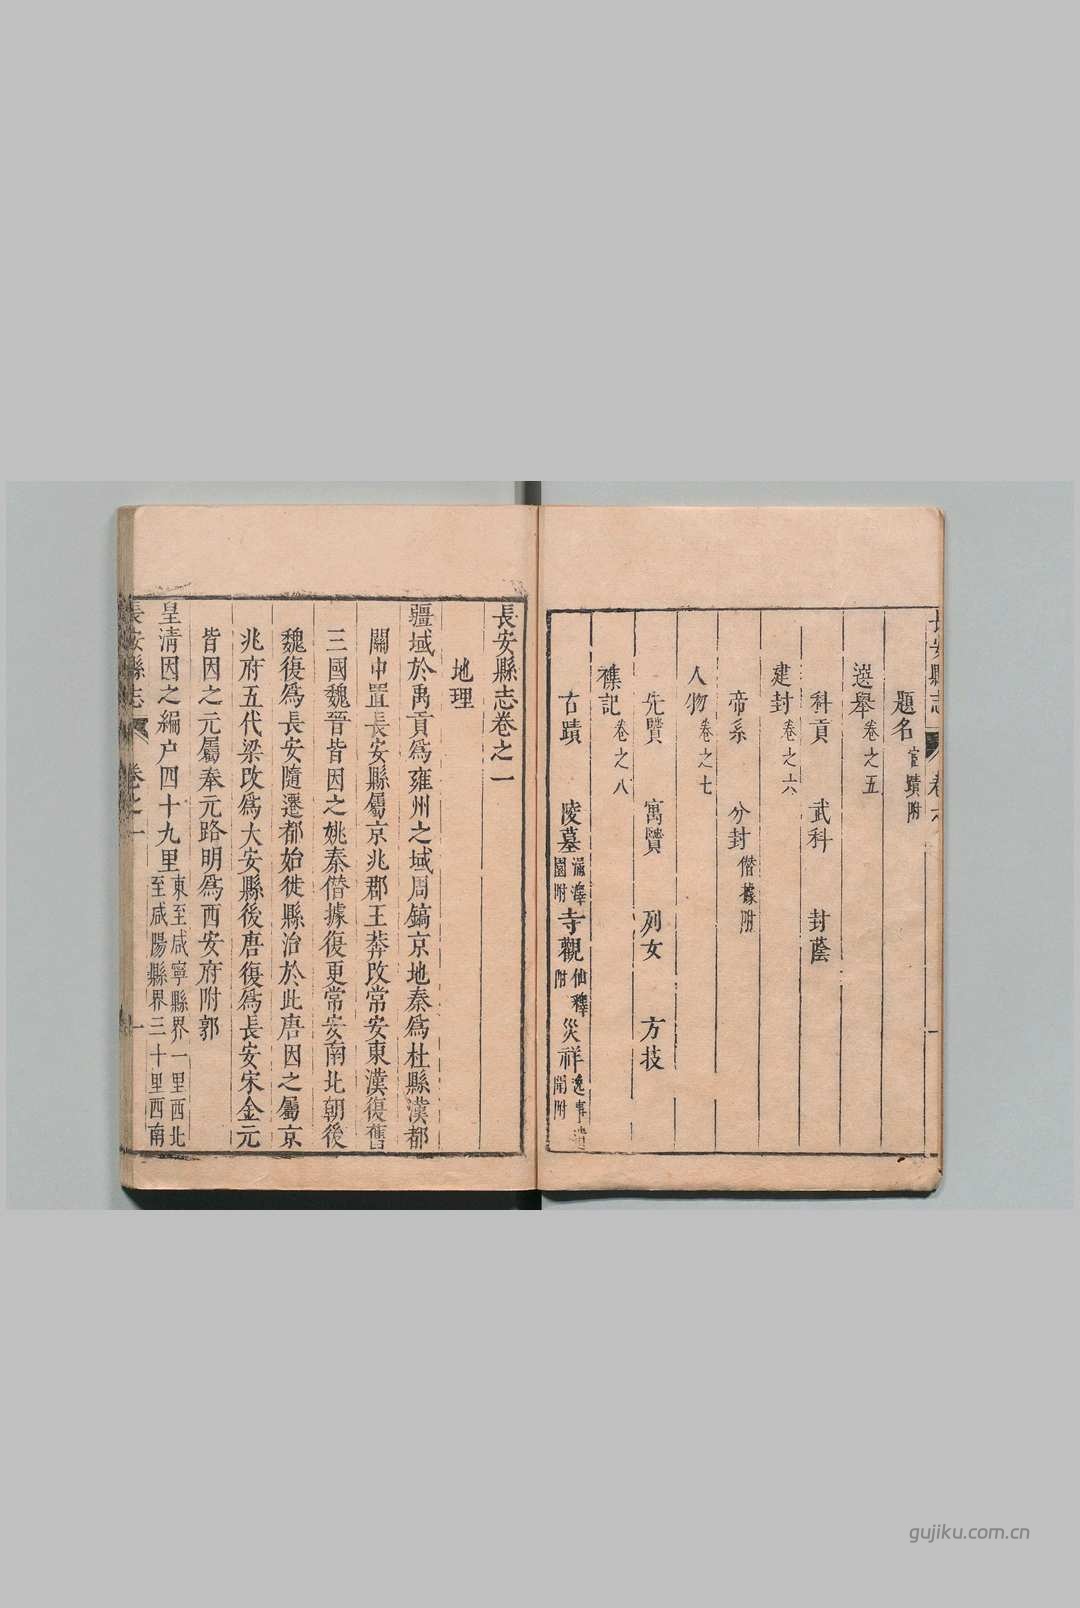 題名宦蹟附
選舉卷之五
科貢 武科 封蔭
建封卷之六
帝系 分封僭據附
人物卷之七
先賢 寓賢 列女 方技
襍記卷之八
古蹟 陵墓 園附 寺觀仙釋附 災祥逸事遺聞附
長安縣志卷之一
地理
疆域於禹貢爲雍州之域周鎬京地秦爲杜縣漢都
關中置長安縣屬京兆郡王莽改常安東漢復舊
三國魏晉皆因之姚秦僭據復更常安南北朝後
魏復爲長安隨遷都始徙縣治於此唐因之屬京
兆府五代梁改爲大安縣後唐復爲長安宋金元
皆因之元屬奉元路明爲西安府附郭
皇清因之編户四十九里東至咸寧縣界一里西北
至咸陽縣界三十里西南
長安縣志 卷之一 一
gujiku.com.cn